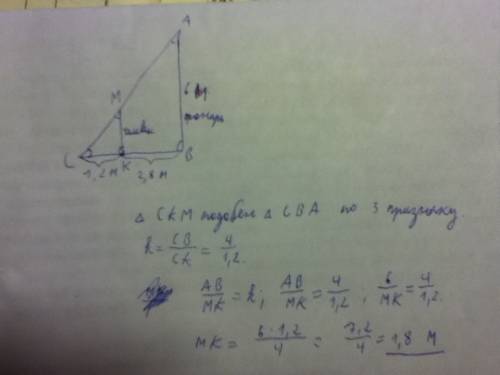 A
M
6 м
фонарь
C
K
B
1,2 м
2,8 м
Δ CKM подобен Δ CBA по 3 признаку.
k = CB/CK = 4/1,2.
AB/MK = k; AB/MK = 4/1,2, 6/MK = 4/1,2.
MK = 6·1,2/4 = 7,2/4 = 1,8 м